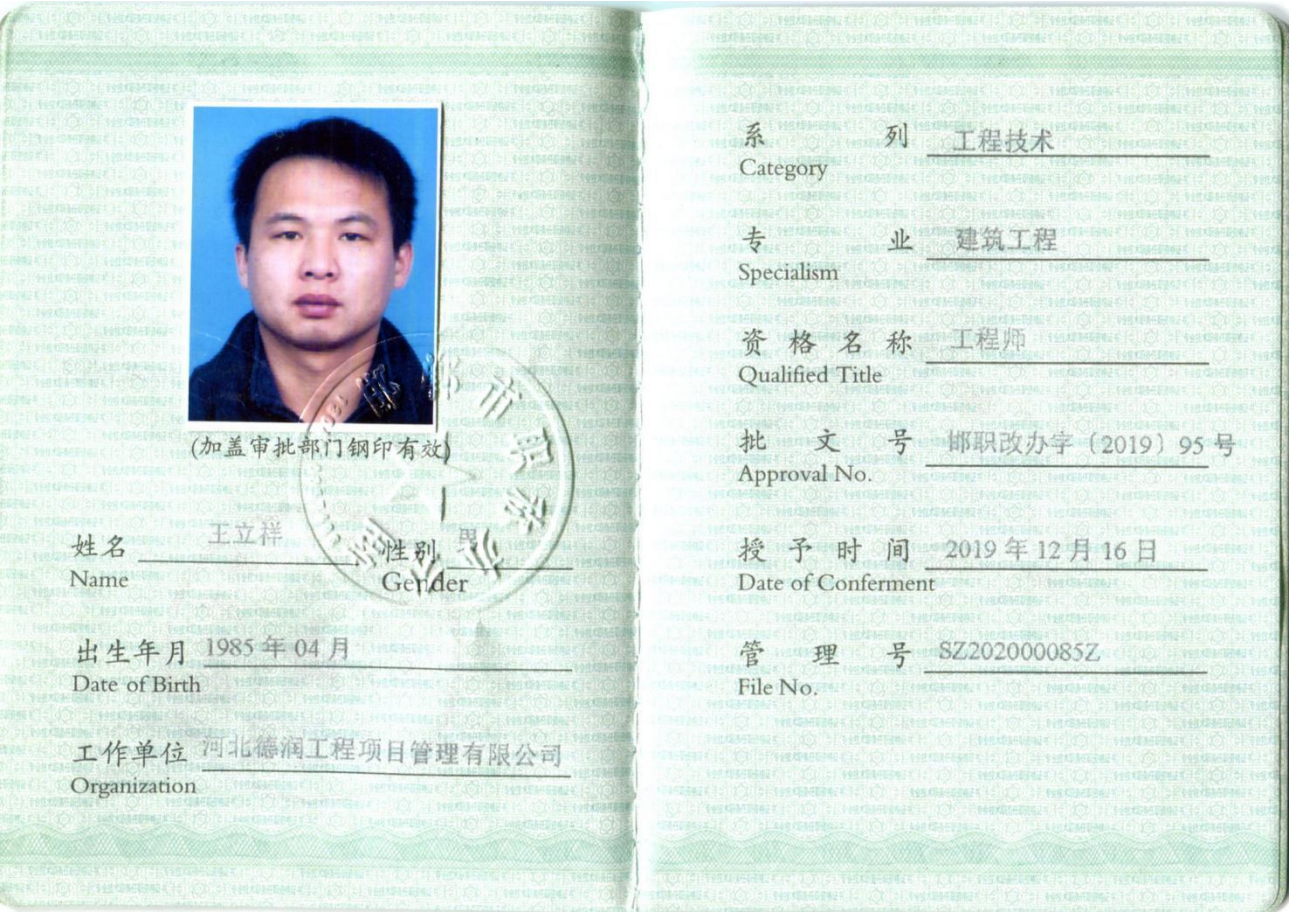 (加盖审批部门钢印有效)
姓名 王立祥 性别 男
Name Gender
出生年月 1985年04月
Date of Birth
工作单位 河北德润工程项目管理有限公司
Organization
系列 工程技术
Category
专业 建筑工程
Specialism
资格名称 工程师
Qualified Title
批文号 邯职改办字〔2019〕95号
Approval No.
授予时间 2019年12月16日
Date of Conferment
管理号 SZ202000085Z
File No.